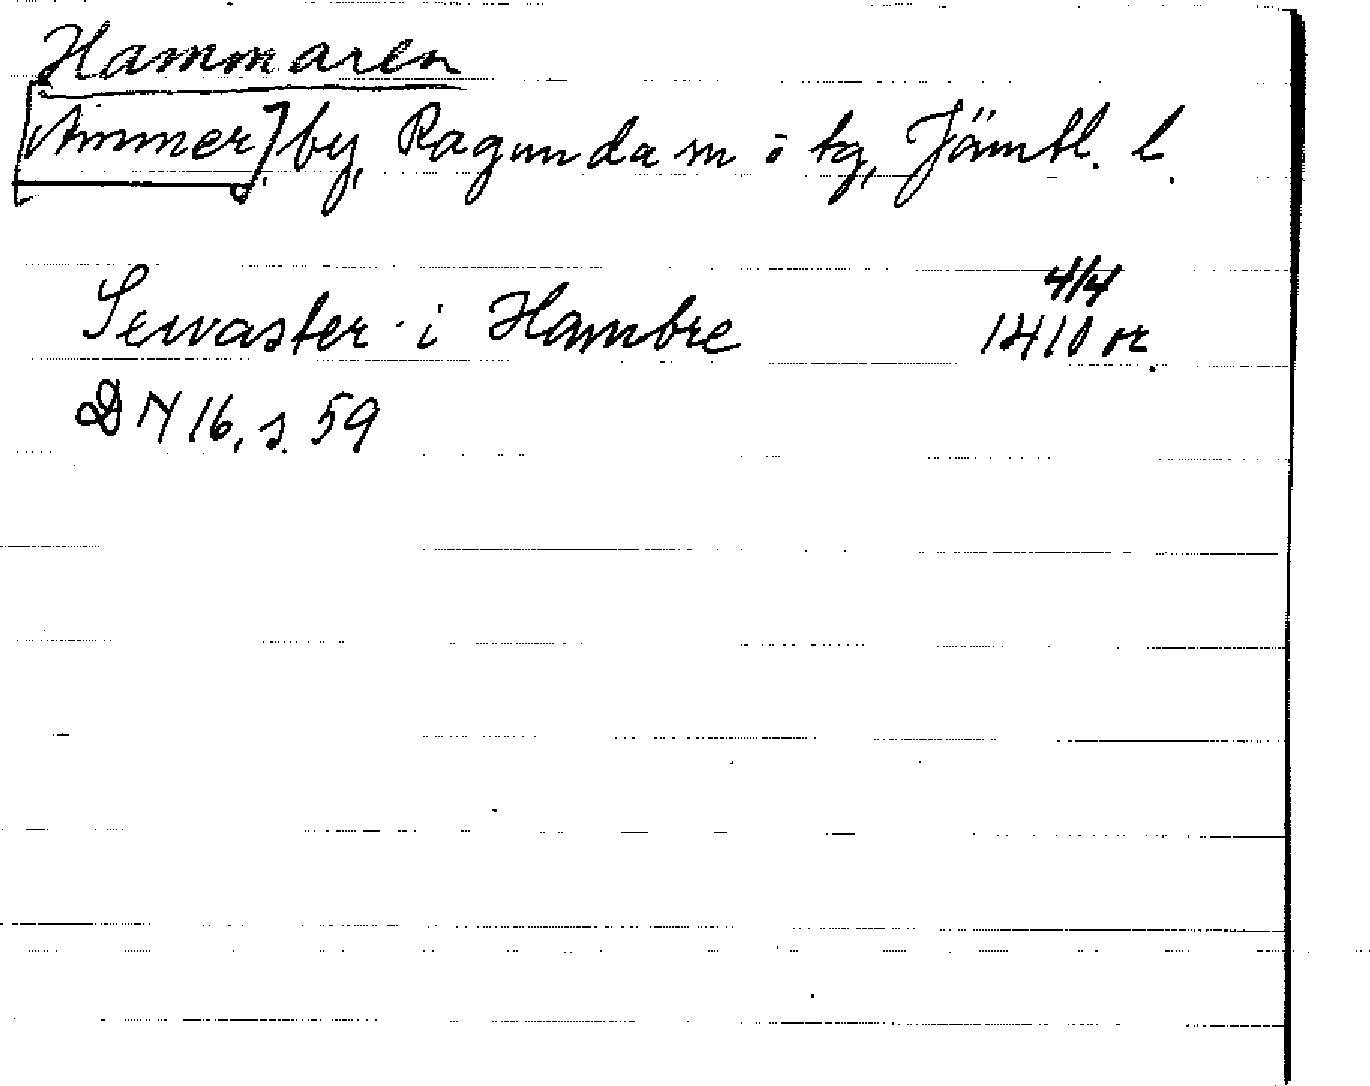 Hammaren
[Ammer] by, Ragunda sn ö tg, Jämtl. l.
4/4
Servaster i Hambre 1410 or.
DN 16, s. 59